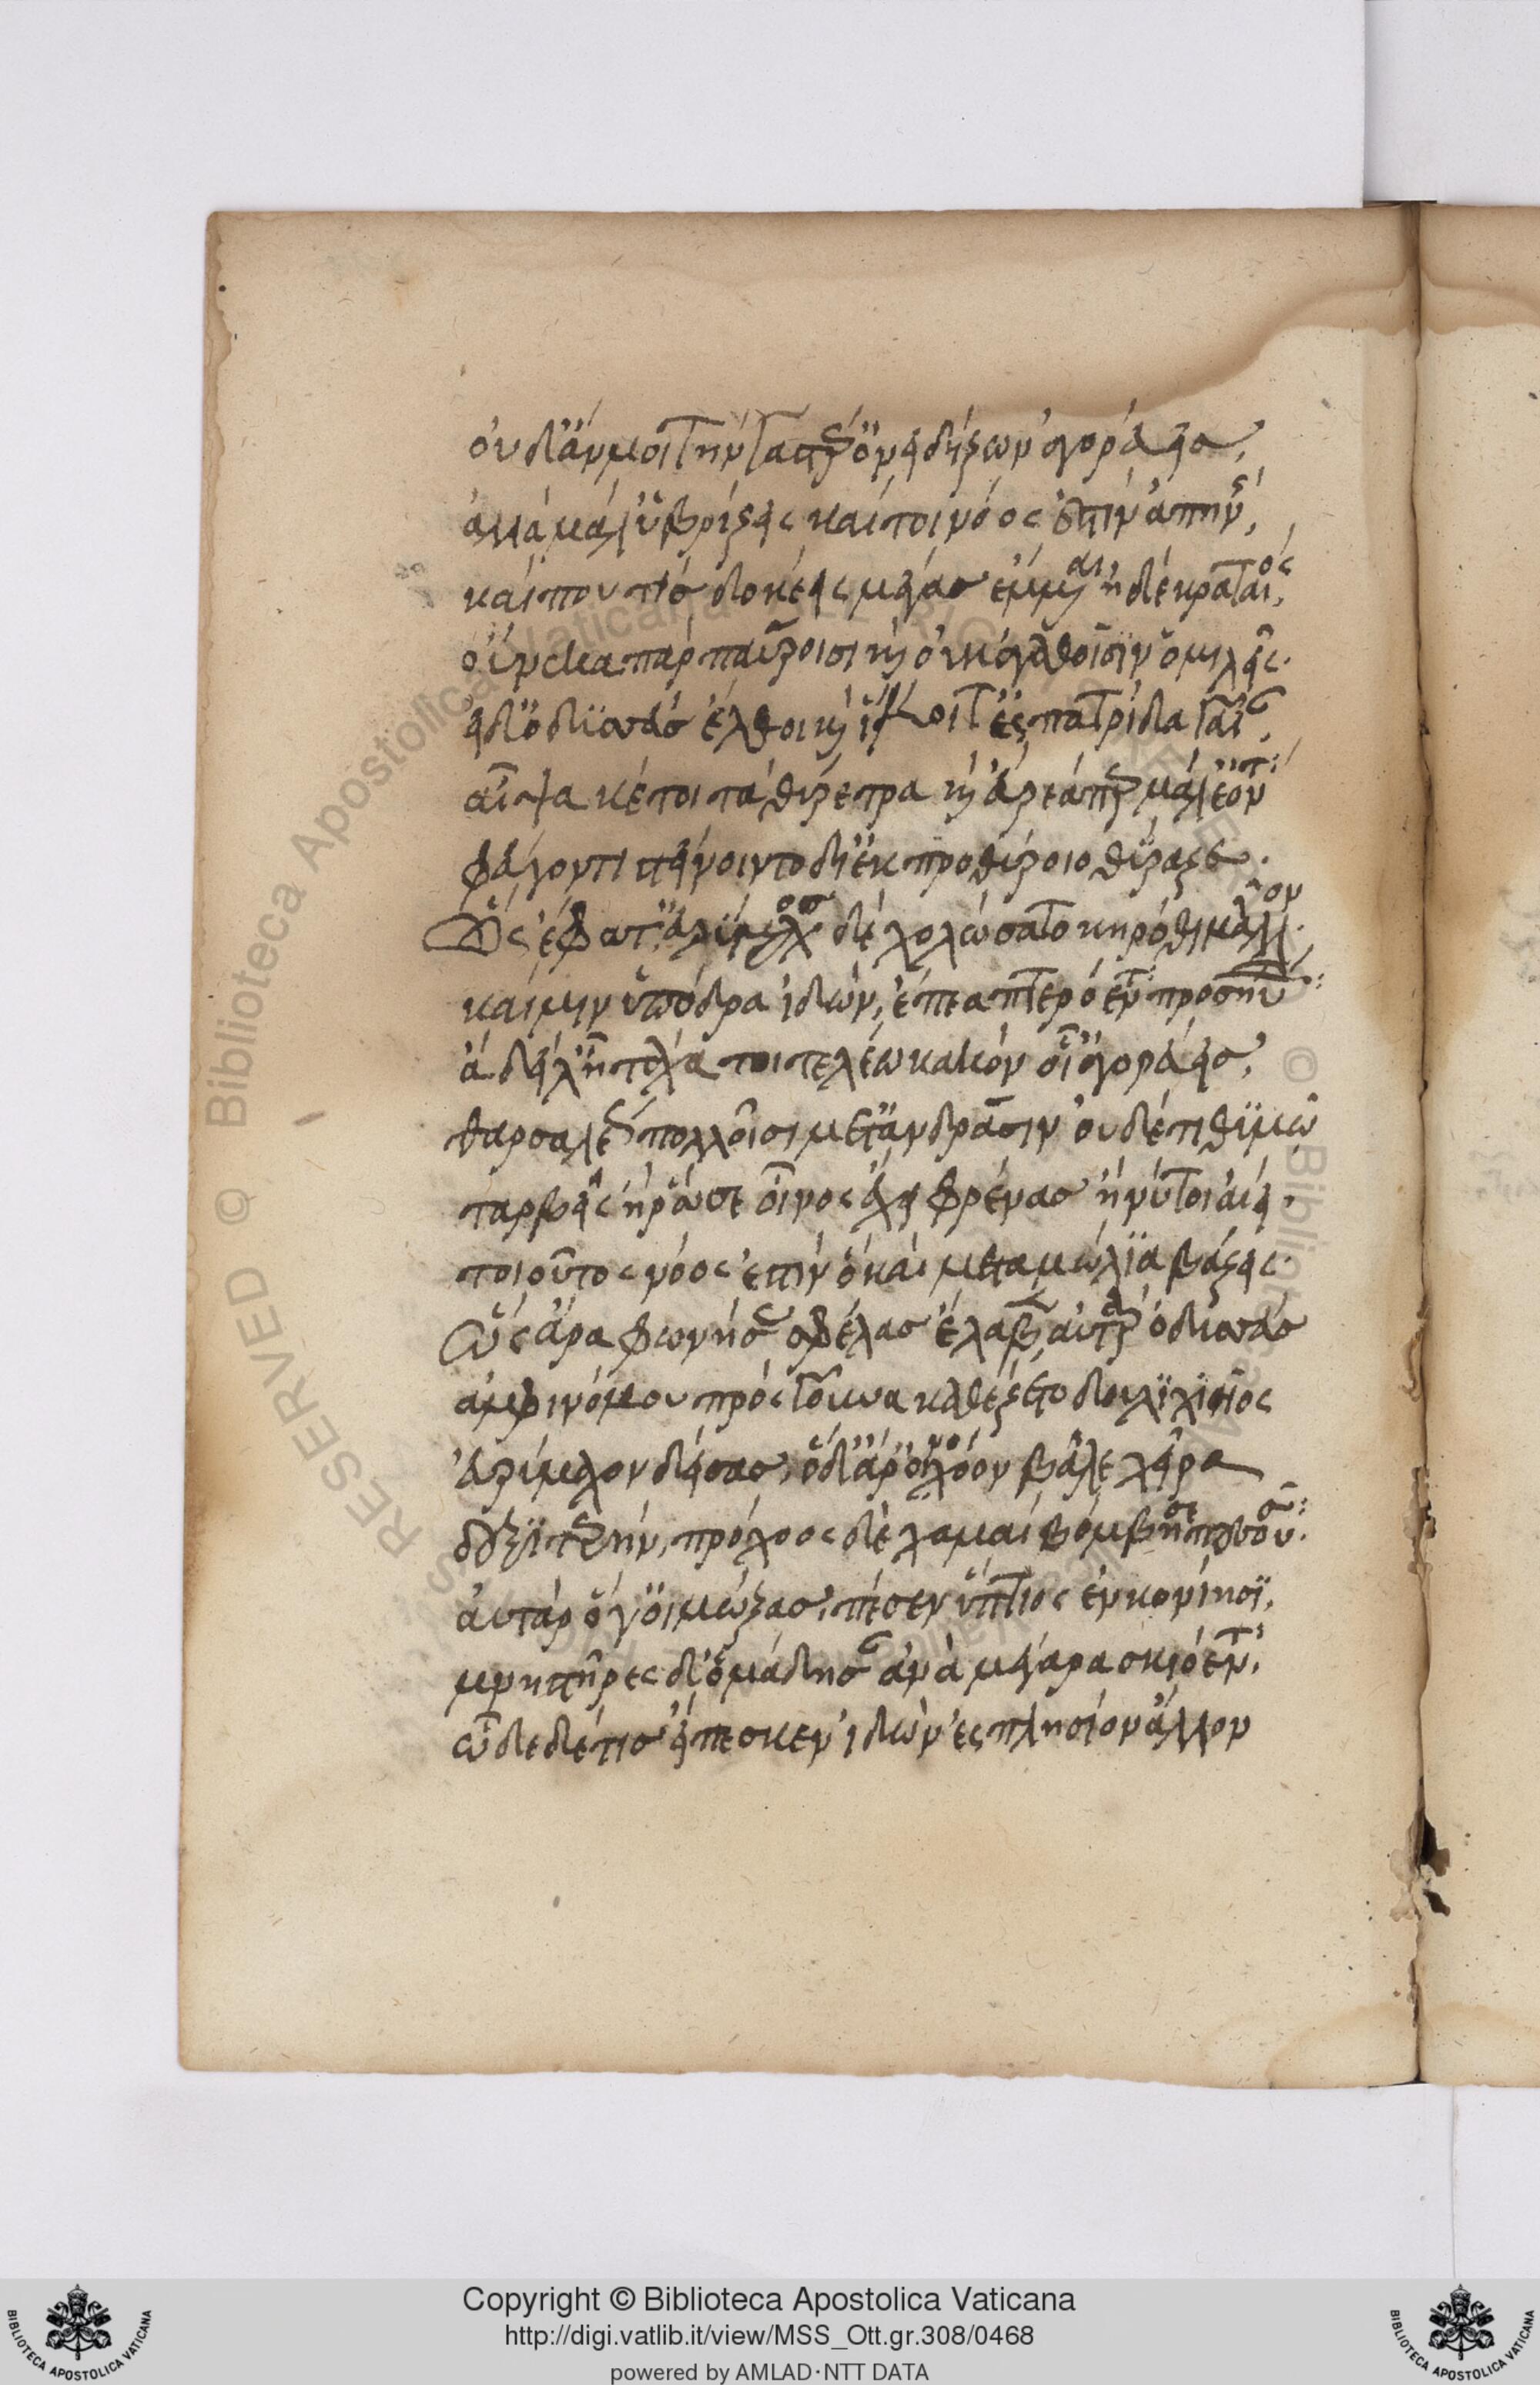 οὐδ' ἄν μοι τὴν γαστέρ' ὀνειδίζων ἀγοράοις,
ἀλλὰ μάλ' ὑβρίζεις καί τοι νόος ἐστὶν ἀπηνής,
καί που τίς δοκέεις μέγας ἔμμεναι ἠδὲ κραταιός,
οὕνεκα πὰρ παύροισι καὶ οὐκ ἀγαθοῖσιν ὁμιλεῖς.
εἰ δ' ὀδυσεὺς ἔλθοι καὶ ἵκοιτ' ἐς πατρίδα γαῖαν,
αἶψα κέ τοι τὰ θύρετρα καὶ εὐρέα περ μάλ' ἐόντα
φεύγοντι στείνοιτο διὲκ προθύροιο θύραζε.
Ὣς ἔφατ' εὐρύμαχος δὲ χολώσατο κηρόθι μᾶλλον.
καί μιν ὑπόδρα ἰδὼν, ἔπεα πτερόεντα προσηύδα:
ἆ δείλ' ἦ τάχα τοι τελέω κακὸν οἷ' ἀγορεύεις,
θαρσαλέως πολλοῖσι μετ' ἀνδράσιν οὐδέ τι θυμῷ
ταρβεῖς ἦ ῥά σε οἶνος ἔχει φρένας ἤ νύ τοι αἰεί.
τοιοῦτος νόος ἐστὶν ὃ καὶ μεταμώλια βάζεις.
Ὣς ἄρα φωνήσας σφέλας ἔλαβεν αὐτὰρ ὀδυσεὺς
ἀμφινόμου πρὸς γοῦνα καθέζετο δουλιχιῆος
εὐρύμαχον δείσας, ὁ δ' ἄρ' οἰνοχόον βάλε χεῖρα
δεξιτερήν, πρόχοος δὲ χαμαὶ βόμβησε πεσοῦσα:
αὐτὰρ ὅγ' οἰμώξας, πέσεν ὕπτιος ἐν κονίῃσι,
μνηστῆρες δ' ὁμάδησαν ἀνὰ μέγαρα σκιόεντα,
ὧδε δέ τις εἴπεσκεν ἰδὼν ἐς πλησίον ἄλλον
Copyright © Biblioteca Apostolica Vaticana
http://digi.vatlib.it/view/MSS_Ott.gr.308/0468
powered by AMLAD·NTT DATA